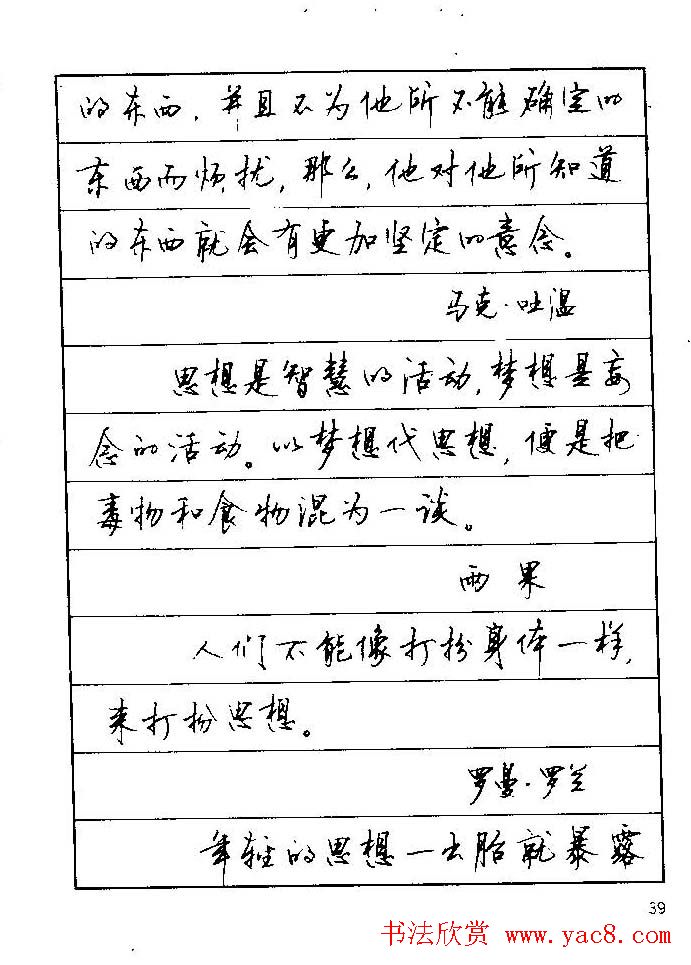 的东西，并且不为他所不能确定的
东西而烦扰，那么，他对他所知道
的东西就会有更加坚定的意念。
马克·吐温
思想是智慧的活动，梦想是妄
念的活动。以梦想代思想，便是把
毒物和食物混为一谈。
雨果
人们不能像打扮身体一样，
来打扮思想。
罗曼·罗兰
年轻的思想一出胎就暴露
39
书法欣赏 www.yac8.com